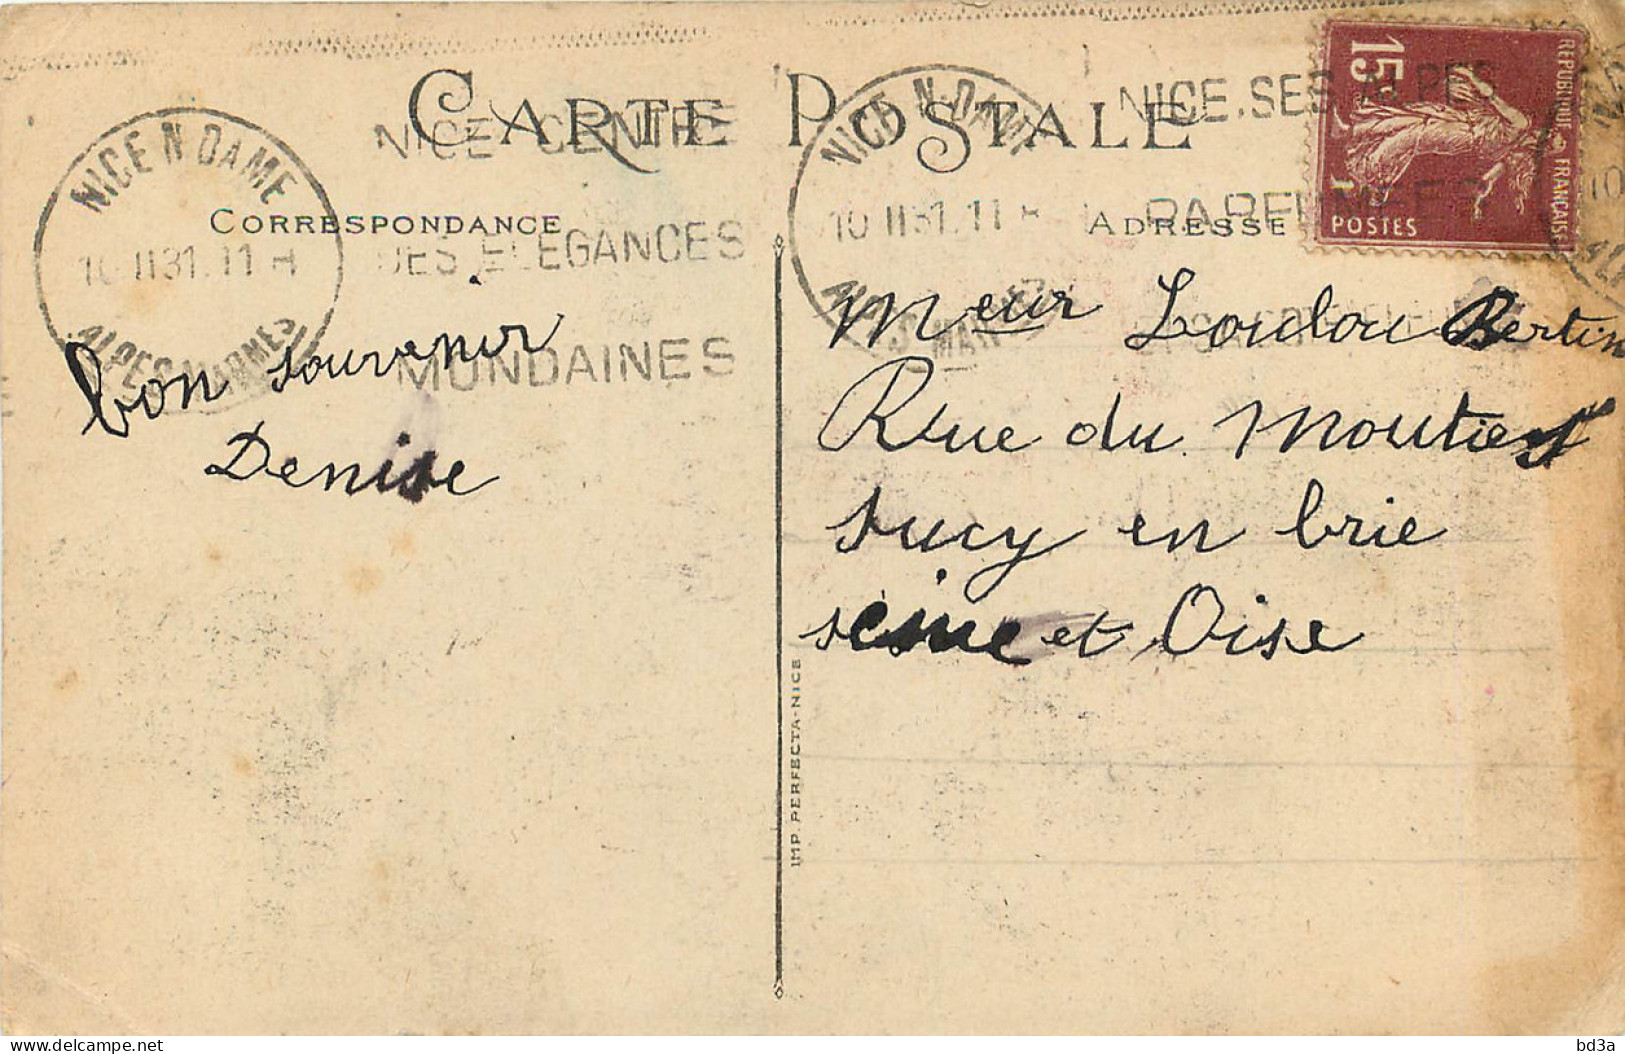 CARTE POSTALE
CORRESPONDANCE
ADRESSE
NICE N DAME
10 II 31. 11 H
ALPES MARMES
NICE CENTRE
DES ELEGANCES
MONDAINES
NICE N. DAME
10 II 31. 11 H
NICE. SES ALPES
15
REPUBLIQUE FRANÇAISE
POSTES
bon souvenir
Denise
Meur Loulou Bertin
Rue du Moutier
sucy en brie
seine et Oise
IMP. PERFECTA-NICE
bd3a